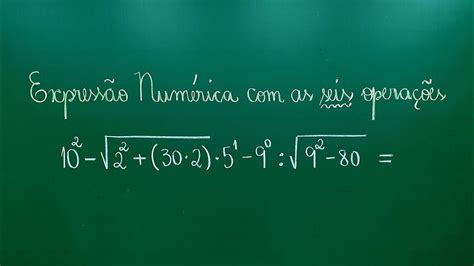 Expressão Numérica com as seis operações
10² - √(2² + (30·2)) · 5¹ - 9⁰ : √(9² - 80) =